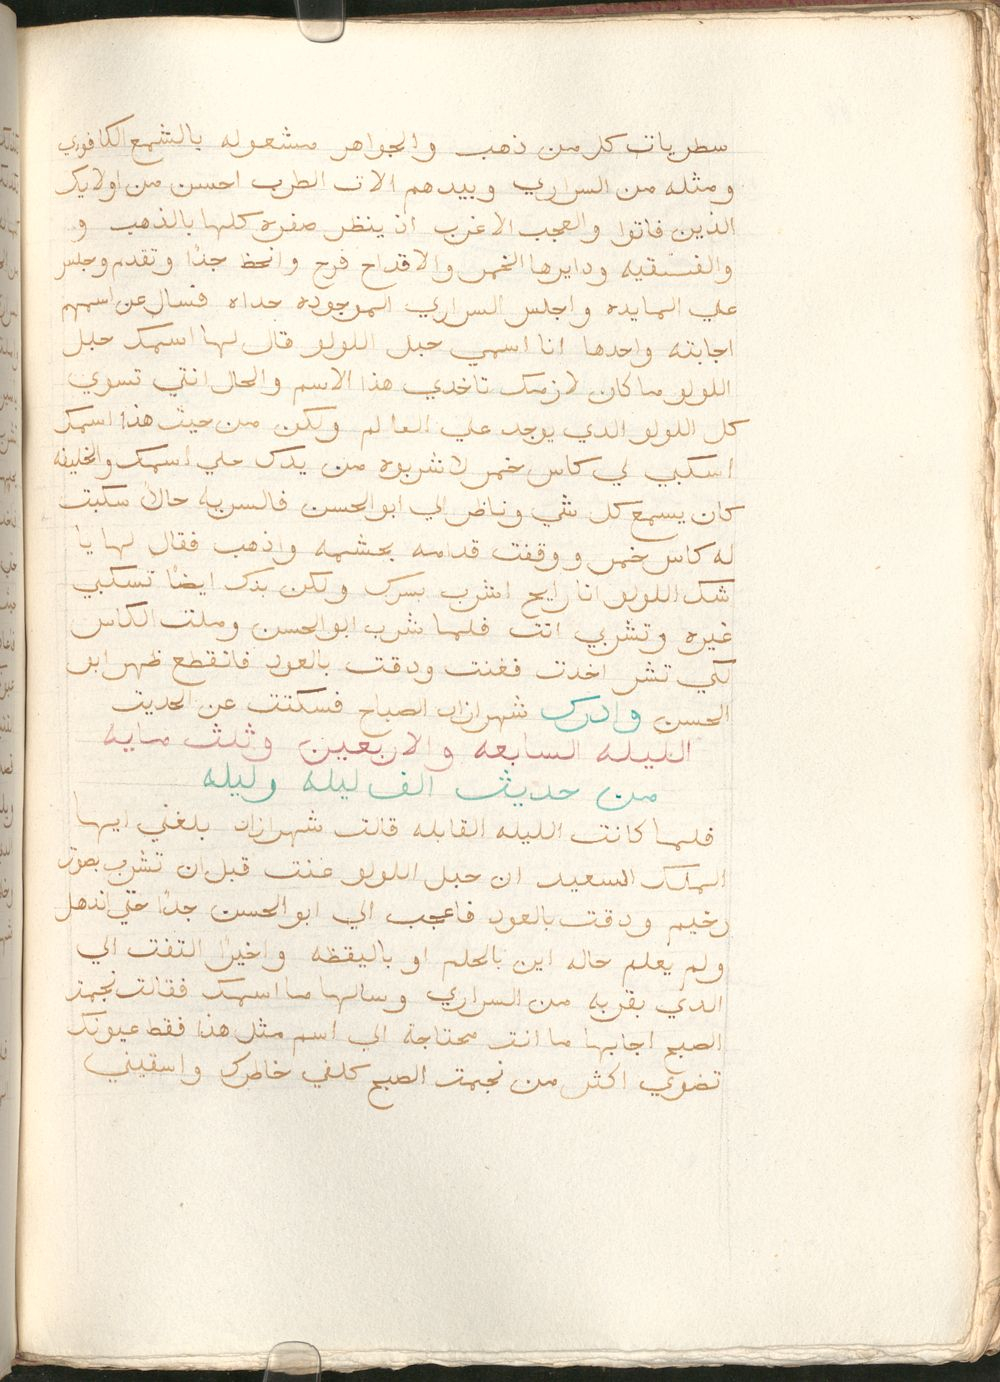 سطريات كل من ذهب والجواهر مشعوله بالشمع الكافوري
ومثله من السراري وبيدهم الات الطرب احسن من اولايك
الذين فاتوا والعجب الاغرب ان ينظر صفره كلها بالذهب و
والفستقيه ودايرها الخمر والاقداح فرح وانحظ جدًا وتقدم وجلس
علي المايده واجلس السراري الموجوده حداه فسال عن اسمهم
اجابته واحدها انا اسمي حبل اللولو قال لها اسمك حبل
اللولو ما كان لازمك تاخدي هذا الاسم والحال انتي تسوي
كل اللولو الدي يوجد علي العالم ولكن من حيث هذا اسمك
اسكبي لي كاس خمر لاشربوه من يدك علي اسمك والخليفه
كان يسمع كل شي وناظر الي ابو الحسن فالسريه حالاً سكبت
له كاس خمر ووقفت قدامه بحشمه واذهب فقال لها يا
شك اللولو انا رايح اشرب بسرك ولكن بدك ايضًا تسكبي
غيره وتشربي انت فلما شرب ابو الحسن وملت الكاس
لكي تشر اخدت فغنت ودقت بالعود فانقطع ظهر ابو
الحسن وادرك شهرازاد الصباح فسكتت عن الحديث
الليله السابعه والاربعين وثلث مايه
من حديث الف ليله وليله
فلما كانت الليله القابله قالت شهرازاد بلغني ايها
الملك السعيد ان حبل اللولو غنت قبل ان تشرب بصوت
رخيم ودقت بالعود فاعجب الي ابو الحسن جدًا حتي اندهل
ولم يعلم حاله اين بالحلم او باليقظه واخيرًا التفت الي
الدي بقربه من السراري وسالها ما اسمك فقالت نجمة
الصبح اجابها ما انت محتاجة الي اسم مثل هذا فقط عيونك
تضوي اكثر من نجمت الصبح كلفي خاطرك واسقيني